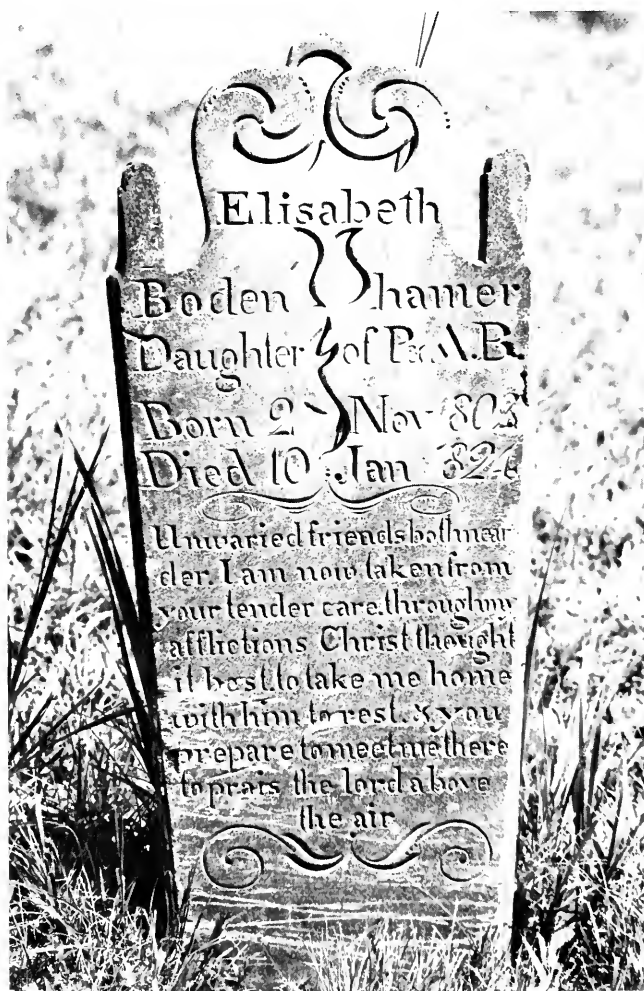 Elisabeth
Boden hamer
Daughter of P. & A. B.
Born 2 Nov 1803
Died 10 Jan 182
Unwaried friends both near
der. I am now taken from
your tender care. through my
afflictions Christ thought
it best. to take me home
with him to rest. & you
prepare to meet me there
to prais the lord above
the air